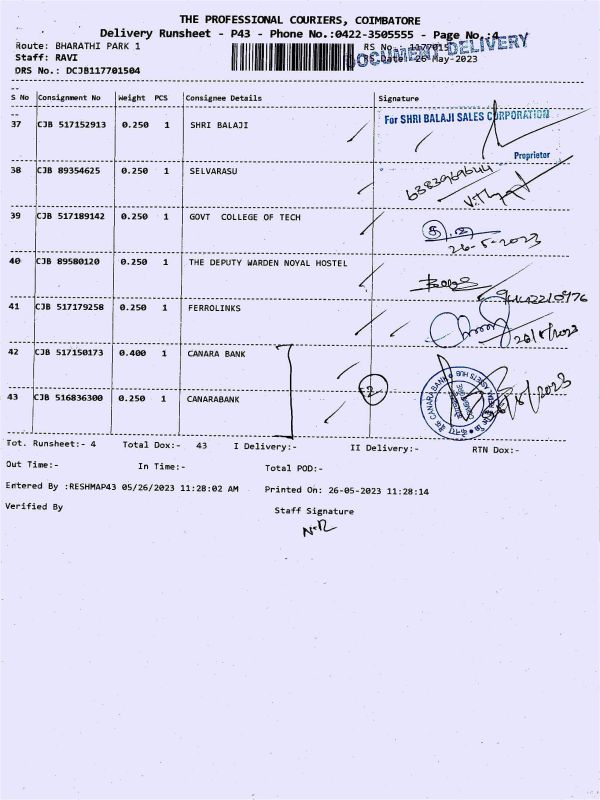 THE PROFESSIONAL COURIERS, COIMBATORE
Delivery Runsheet - P43 - Phone No.:0422-3505555 - Page No.:4
Route: BHARATHI PARK 1 RS No.: 1177015
DOCUMENT DELIVERY
Staff: RAVI RS Date: 26-May-2023
DRS No.: DCJB117701504
S No Consignment No Weight PCS Consignee Details Signature
37 CJB 517152913 0.250 1 SHRI BALAJI
For SHRI BALAJI SALES CORPORATION
Proprietor
38 CJB 89354625 0.250 1 SELVARASU
6383969644
39 CJB 517189142 0.250 1 GOVT COLLEGE OF TECH
26-5-2023
40 CJB 89580120 0.250 1 THE DEPUTY WARDEN NOYAL HOSTEL
41 CJB 517179258 0.250 1 FERROLINKS
26/5/2023
42 CJB 517150173 0.400 1 CANARA BANK
2
43 CJB 516836300 0.250 1 CANARABANK
CANARA BANK
Tot. Runsheet:- 4 Total Dox:- 43 I Delivery:- II Delivery:- RTN Dox:-
Out Time:- In Time:- Total POD:-
Entered By :RESHMAP43 05/26/2023 11:28:02 AM Printed On: 26-05-2023 11:28:14
Verified By Staff Signature